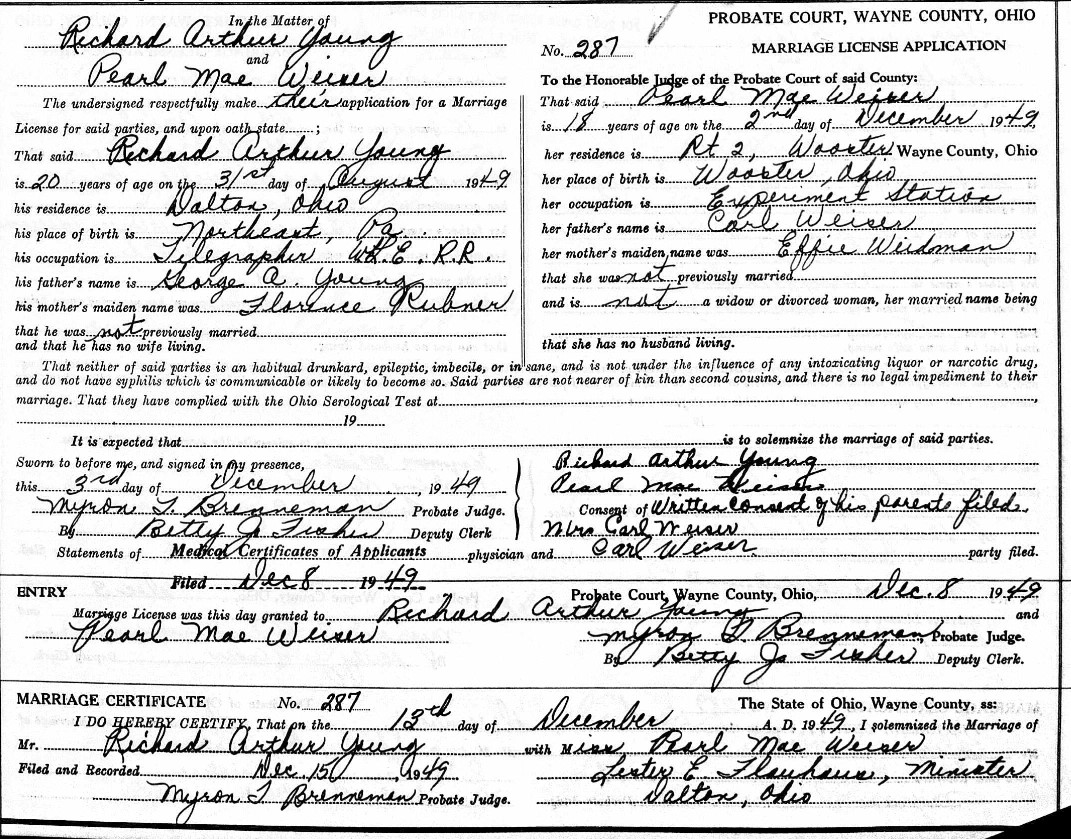 In the Matter of
Richard Arthur Young
and
Pearl Mae Weiser
The undersigned respectfully make their application for a Marriage
License for said parties, and upon oath state ;
That said Richard Arthur Young
is 20 years of age on the 31st day of August 1949
his residence is Dalton, Ohio
his place of birth is Northeast, Pa.
his occupation is Telegrapher W.L.E. R.R.
his father's name is George A. Young
his mother's maiden name was Florence Rubner
that he was not previously married
and that he has no wife living.
PROBATE COURT, WAYNE COUNTY, OHIO
No. 287 MARRIAGE LICENSE APPLICATION
To the Honorable Judge of the Probate Court of said County:
That said Pearl Mae Weiser
is 18 years of age on the 2nd day of December 1949,
her residence is Rt 2, Wooster Wayne County, Ohio
her place of birth is Wooster, Ohio
her occupation is Experiment Station
her father's name is Carl Weiser
her mother's maiden name was Effie Weidman
that she was not previously married
and is not a widow or divorced woman, her married name being
that she has no husband living.
That neither of said parties is an habitual drunkard, epileptic, imbecile, or insane, and is not under the influence of any intoxicating liquor or narcotic drug,
and do not have syphilis which is communicable or likely to become so. Said parties are not nearer of kin than second cousins, and there is no legal impediment to their
marriage. That they have complied with the Ohio Serological Test at
19
It is expected that is to solemnize the marriage of said parties.
Sworn to before me, and signed in my presence,
this 3rd day of December, 1949
Myron T. Brenneman Probate Judge.
By Betty Jo Fisher Deputy Clerk
Richard Arthur Young
Pearl Mae Weiser
Consent of Written Consent of his parents filed.
Mrs Carl Weiser
Statements of Medical Certificates of Applicants physician and Carl Weiser party filed.
Filed Dec 8 1949
ENTRY Probate Court, Wayne County, Ohio, Dec. 8 1949
Marriage License was this day granted to Richard Arthur Young and
Pearl Mae Weiser Myron T. Brenneman, Probate Judge.
By Betty Jo Fisher Deputy Clerk.
MARRIAGE CERTIFICATE No. 287 The State of Ohio, Wayne County, ss:
I DO HEREBY CERTIFY, That on the 13th day of December A. D. 1949, I solemnized the Marriage of
Mr. Richard Arthur Young with Miss Pearl Mae Weiser
Filed and Recorded Dec. 15 1949 Lester E. Minister
Myron T Brenneman Probate Judge. Dalton, Ohio